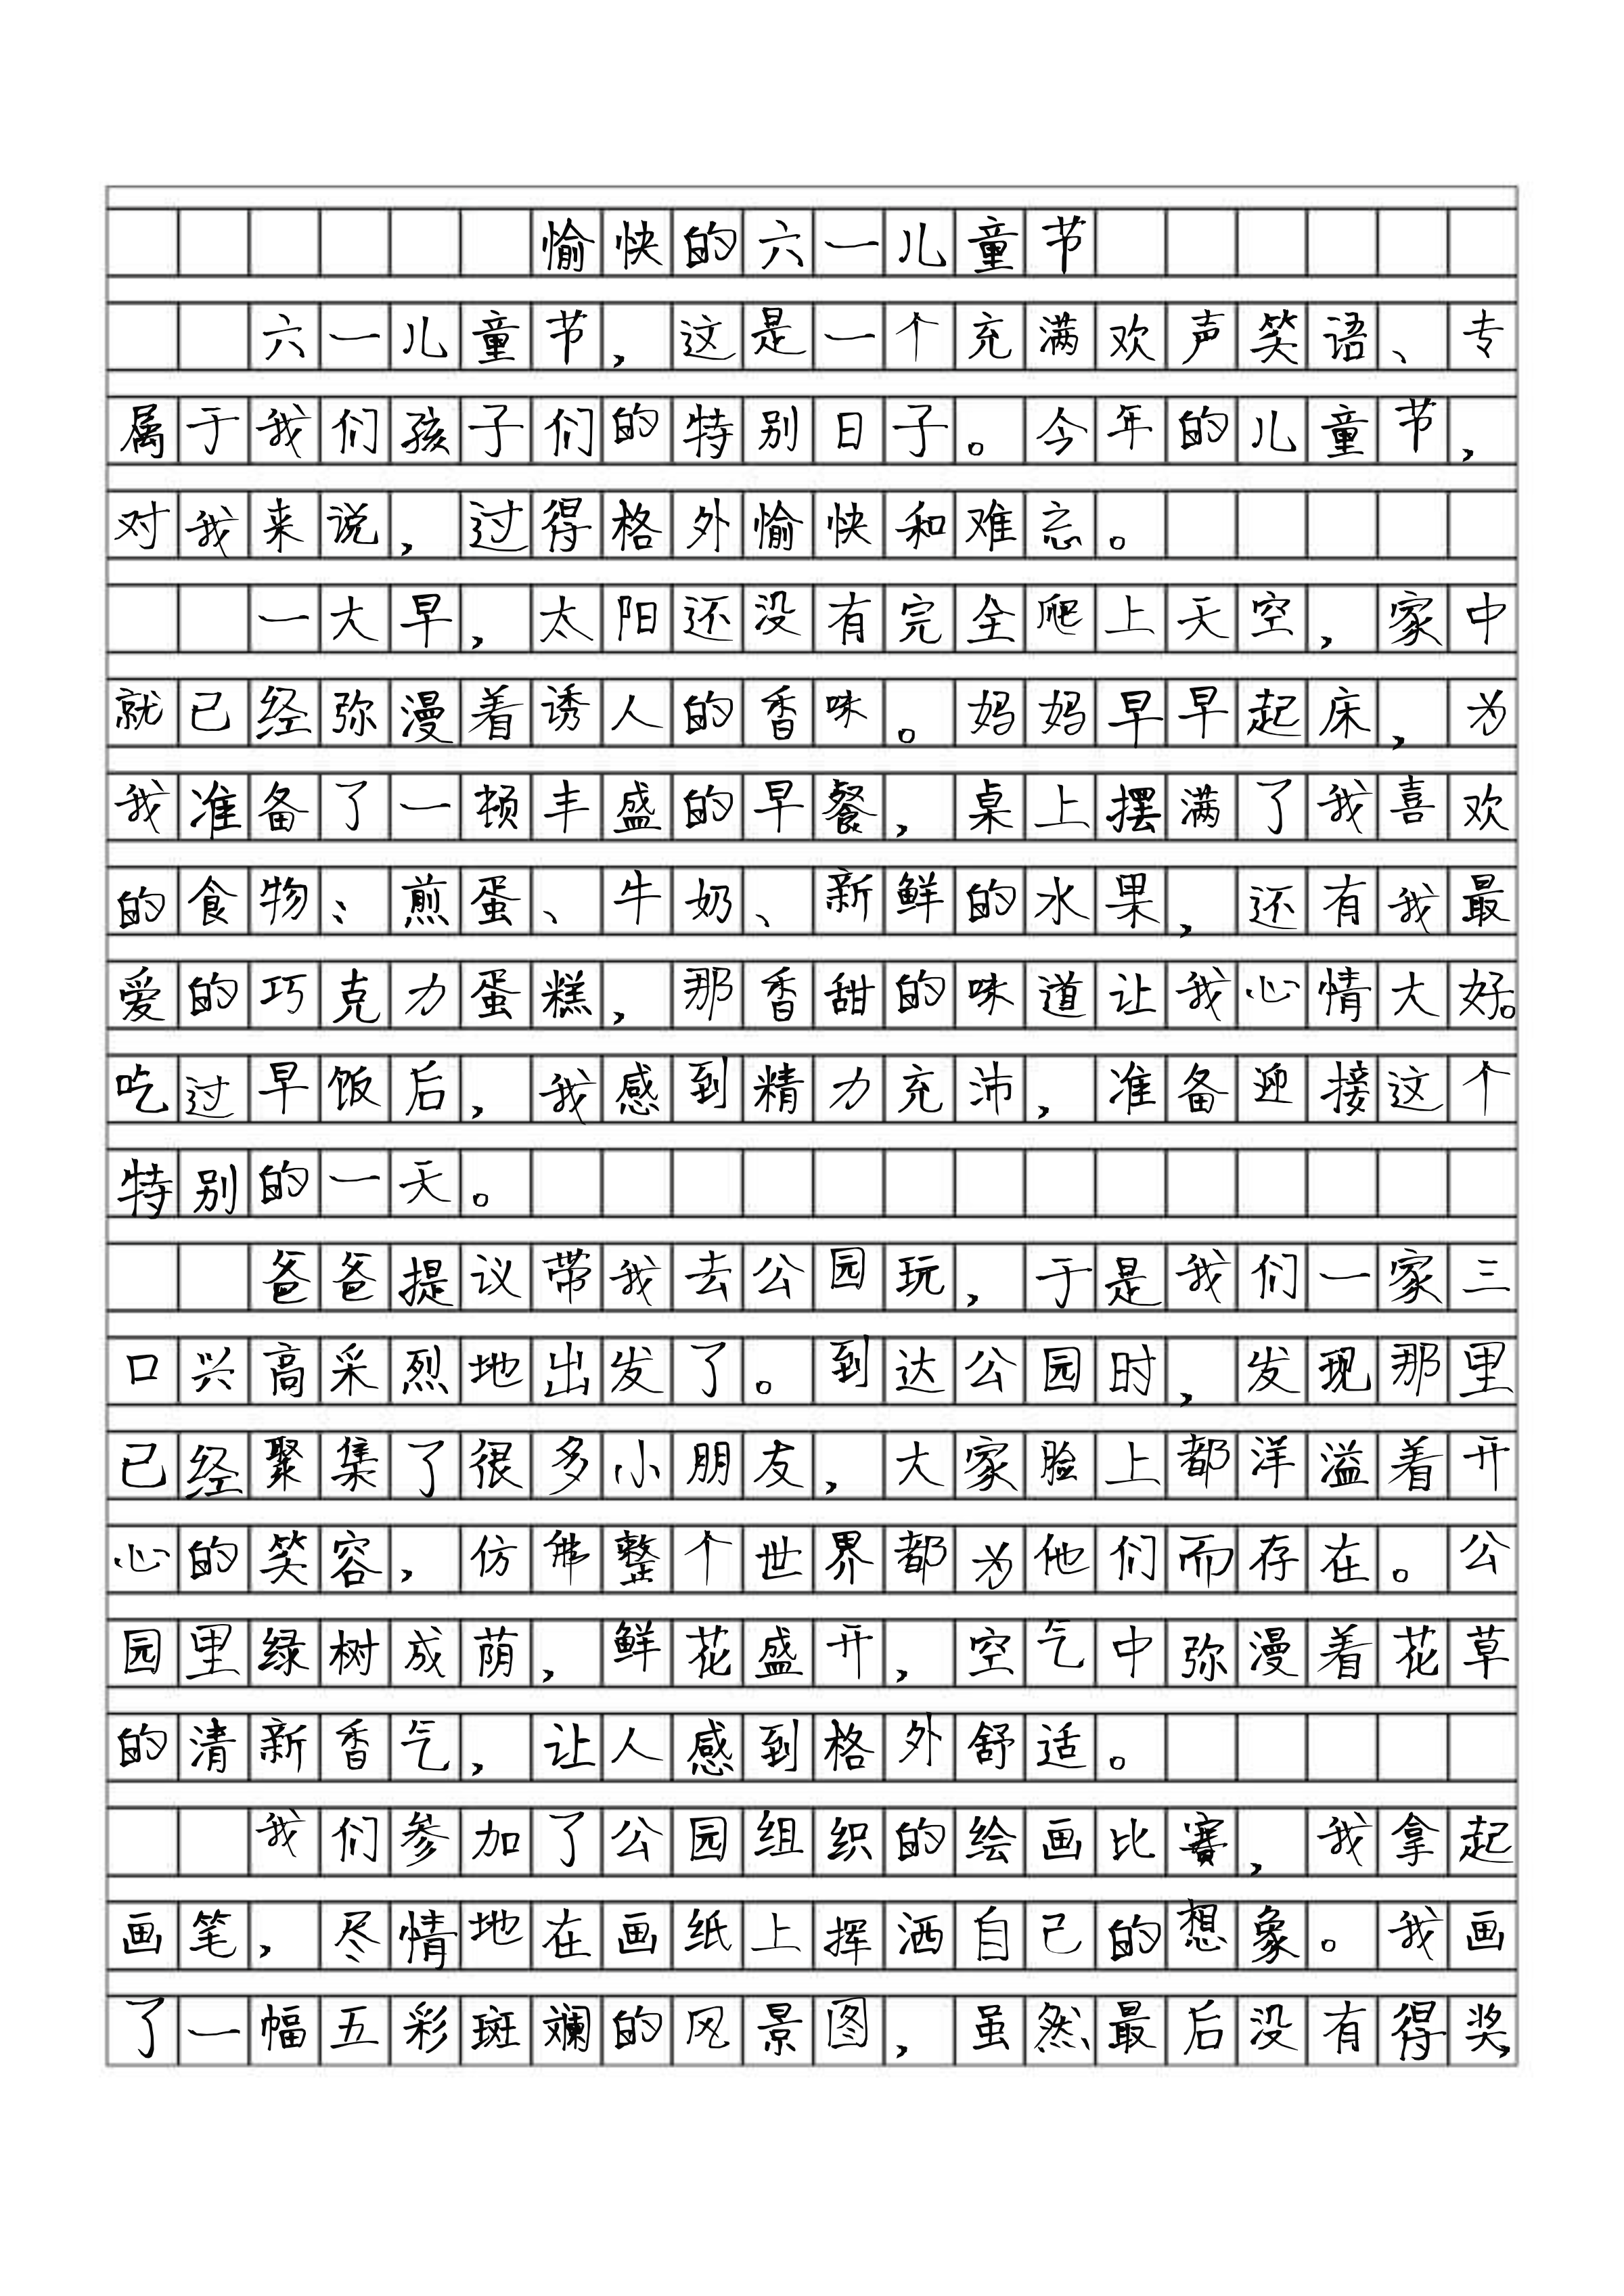 愉快的六一儿童节
六一儿童节，这是一个充满欢声笑语、专
属于我们孩子们的特别日子。今年的儿童节，
对我来说，过得格外愉快和难忘。
一大早，太阳还没有完全爬上天空，家中
就已经弥漫着诱人的香味。妈妈早早起床，为
我准备了一顿丰盛的早餐，桌上摆满了我喜欢
的食物：煎蛋、牛奶、新鲜的水果，还有我最
爱的巧克力蛋糕，那香甜的味道让我心情大好。
吃过早饭后，我感到精力充沛，准备迎接这个
特别的一天。
爸爸提议带我去公园玩，于是我们一家三
口兴高采烈地出发了。到达公园时，发现那里
已经聚集了很多小朋友，大家脸上都洋溢着开
心的笑容，仿佛整个世界都为他们而存在。公
园里绿树成荫，鲜花盛开，空气中弥漫着花草
的清新香气，让人感到格外舒适。
我们参加了公园组织的绘画比赛，我拿起
画笔，尽情地在画纸上挥洒自己的想象。我画
了一幅五彩斑斓的风景图，虽然最后没有得奖，